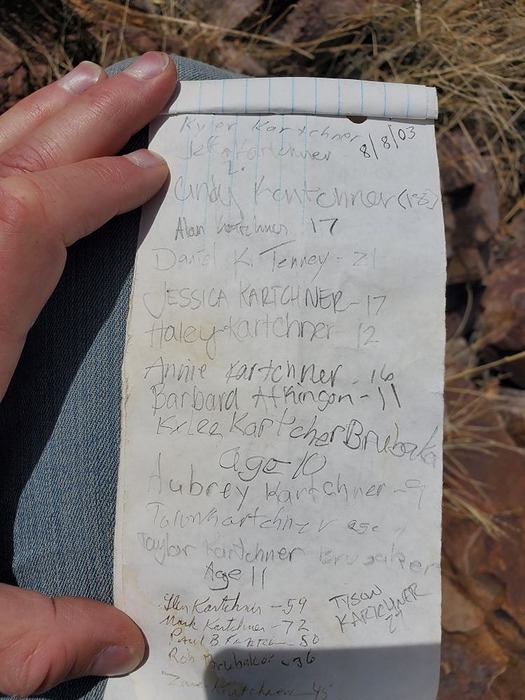 Kyler Kartchner
8/8/03
Jeff Kartchner
Cindy Kartchner
Alan Kartchner 17
David K. Tenney - 21
JESSICA KARTCHNER - 17
Haley Kartchner 12
Annie Kartchner 16
Barbara Atkinson - 11
Kylee Kartcher Brubaker
age 10
Aubrey Kartchner - 9
Kartchner age
Taylor Kartchner Brubaker
Age 11
Glen Kartchner - 59
Mark Kartchner - 72
Paul B - 50
Rob Brubaker - 36
Kartchner - 45
TYSON
KARTCHNER